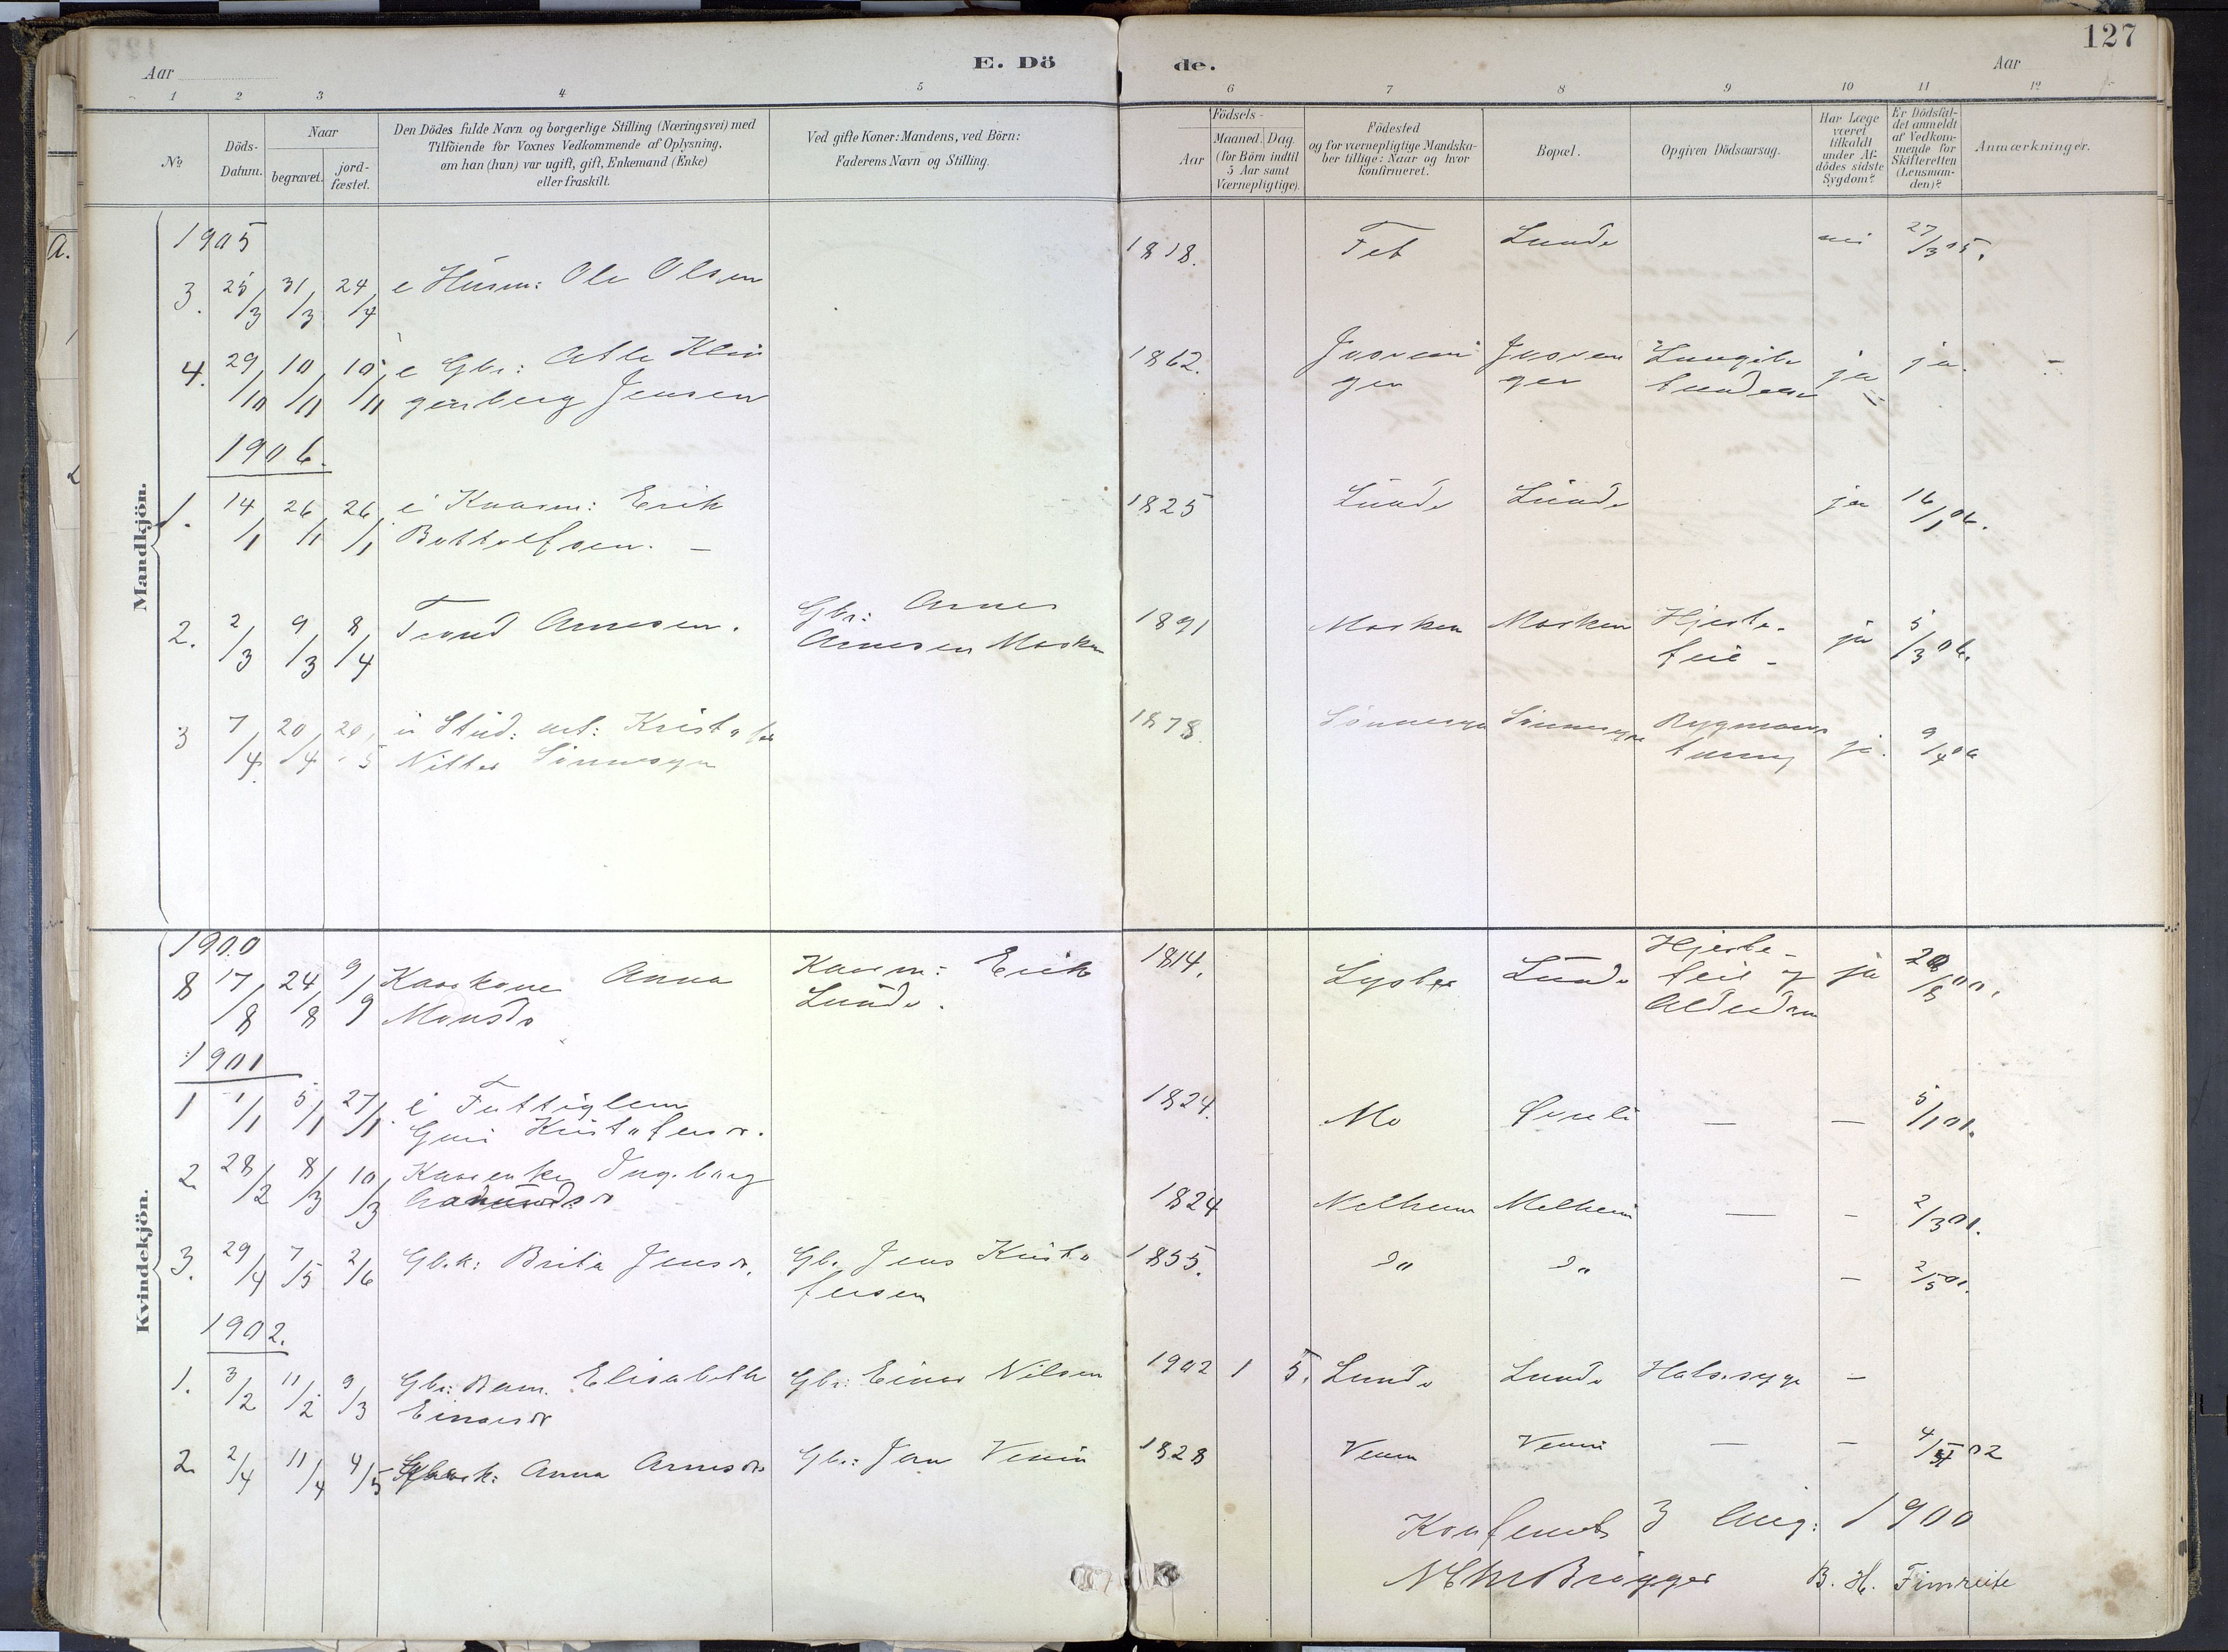 127
Aar
E. Dö
de.
Aar
1 2 3 4 5 6 7 8 9 10 11 12
No
Döds-
Datum.
Naar
begravet.
jord-
fæstet.
Den Dödes fulde Navn og borgerlige Stilling (Næringsvei) med
Tilföiende for Voxnes Vedkommende af Oplysning,
om han (hun) var ugift, gift, Enkemand (Enke)
eller fraskilt.
Ved gifte Koner: Mandens, ved Börn:
Faderens Navn og Stilling.
Födsels-
Aar
Maaned. Dag.
(for Börn indtil
5 Aar samt
Værnepligtige).
Födested
og for værnepligtige Mandska-
ber tillige: Naar og hvor
konfirmeret.
Bopæl.
Opgiven Dödsaarsag.
Har Læge
været
tilkaldt
under Af-
dödes sidste
Sygdom?
Er Dödsfal-
det anmeldt
af Vedkom-
mende for
Skifteretten
(Lensman-
den)?
Anmærkninger.
Mandkjön.
1905
3. 25/3 31/3 24/4 e Husm: Ole Olsen 1818. Fet Lunde nei 27/3 05.
4. 29/10 10/11 10/11 e Gbr: Atle Klin
genberg Jensen 1862. ja ja.
1906.
1. 14/1 26/1 26/1 Kaarm: Erik
Bottolfsen. — 1825 Lunde Lunde ja 16/1 06.
2. 2/3 9/3 8/4 Trond Arnesen. Gbr: Arnes
Arnesen Mosken 1891 Mosken Mosken Hjerte-
feil - ja 5/3 06.
3 7/4 20/4 20/5 Stud: art: Kristofer
1878 Rygmarvs ja. 9/4 06
Kvindekjön.
1900
8 17/8 24/8 9/9 Kaarkone Anna
Monsd. Kaarm: Erik
Lunde. 1814. Lyster Lunde Hjerte-
feil og
Alderdom ja 20/8 00.
1901
1 1/1 5/1 27/1 e Fattiglem
Guri Kristofersd. 1824. Mo — — 5/1 01.
2 28/2 8/3 10/3 Kaarenke Ingeborg
1824 Melheim Melheim — - 2/3 01.
3. 29/4 7/5 2/6 Gbk: Brita Jensd. Gb. Jens Kristo
fersen 1855. Do Do - 2/5 01.
1902.
1. 3/2 11/2 9/3 Gbr: Barn. Elisabeth
Einarsd. Gbr: Einar Nilsen 1902 1 5. Lunde Lunde Halssyge -
2 2/4 11/4 4/5 Anna Arnesd. Gbr: Jon Venin 1828 — - 02
Konferert 3 Aug: 1900
B. H. Fimreite